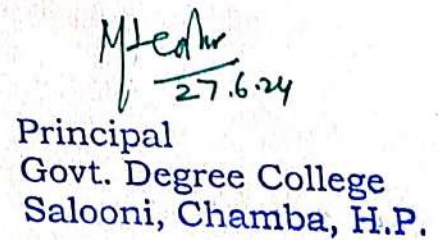 27.6.24
Principal
Govt. Degree College
Salooni, Chamba, H.P.